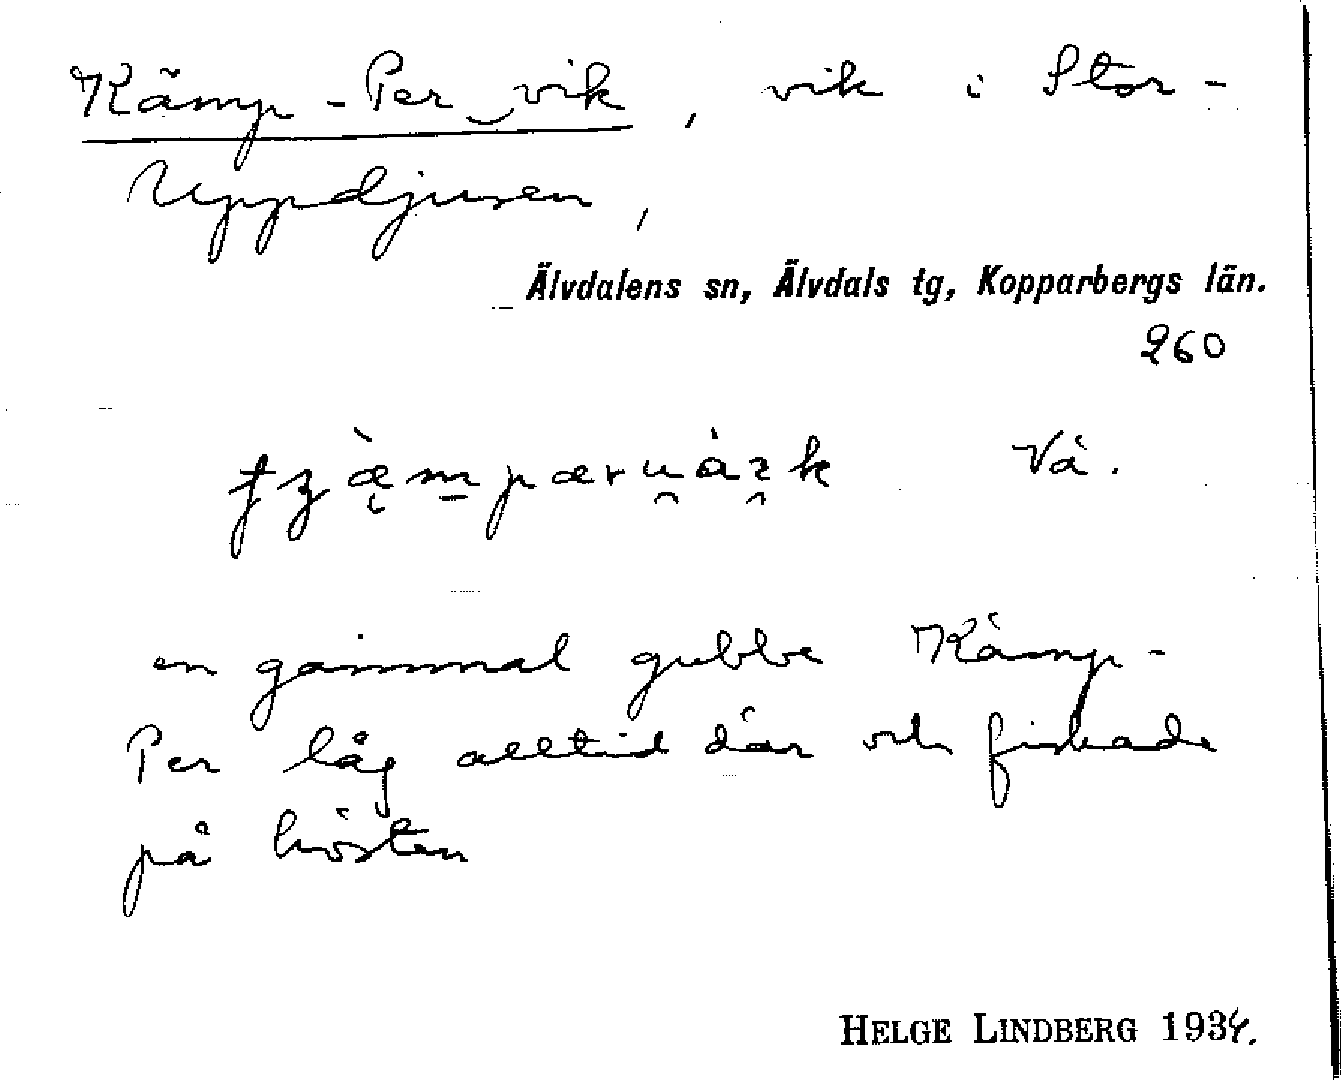 Kämp-Per‿vik, vik i Stor-
Uppdjusen,
Älvdalens sn, Älvdals tg, Kopparbergs län.
260
Vå.
en gammal gubbe Kämp-
Per låg alltid där och fiskade
på hösten
HELGE LINDBERG 1934.